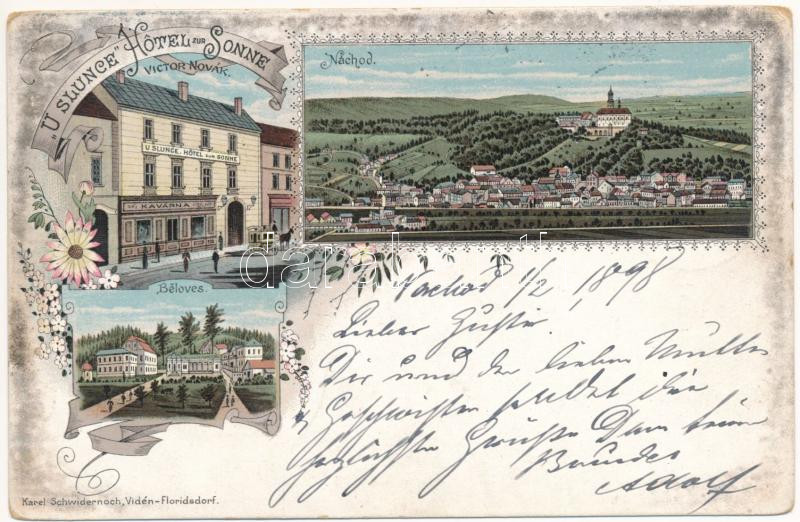 "U SLUNCE" HÔTEL ZUR SONNE
VICTOR NOVÁK.
U SLUNCE. HÔTEL ZUR SONNE
KAVÁRNA
Náchod.
Běloves.
Nachod 1/2 1898
Lieber Gusti.
Dir und der lieben Mutter
Geschwister sendet die
herzlichsten Grüße Dein
Bruder
Adolf
Karel Schwidernoch, Vídeń-Floridsdorf.
darabanth